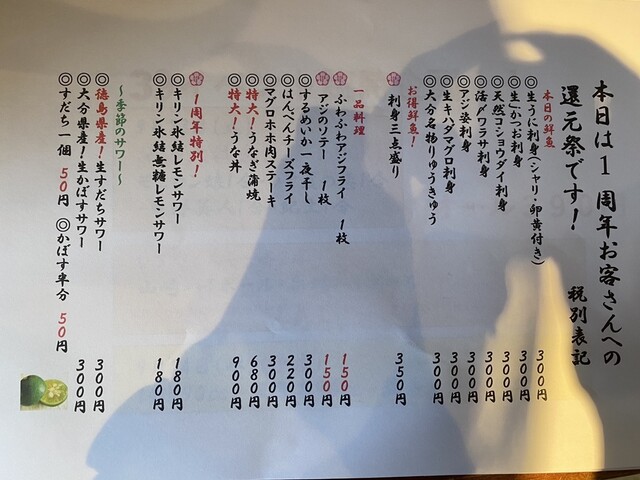 本日は1周年お客さんへの
還元祭です! 税別表記
本日の鮮魚
◎生うに刺身(シャリ・卵黄付き) 300円
◎生かつお刺身 300円
◎天然コショウダイ刺身 300円
◎活〆ワラサ刺身 300円
◎アジ姿刺身 300円
◎生キハダマグロ刺身 300円
◎大分名物りゅうきゅう 300円
お得鮮魚!
刺身三点盛り 350円
一品料理
ふわふわアジフライ 1枚 150円
アジのソテー 1枚 150円
◎するめいか一夜干し 300円
◎はんぺんチーズフライ 220円
◎マグロホホ肉ステーキ 300円
◎特大!うなぎ蒲焼 680円
◎特大!うな丼 900円
1周年特別!
◎キリン氷結レモンサワー 180円
◎キリン氷結無糖レモンサワー 180円
〜季節のサワー〜
◎徳島県産!生すだちサワー 300円
◎大分県産!生かぼすサワー 300円
◎すだち一個 50円 ◎かぼす半分 50円